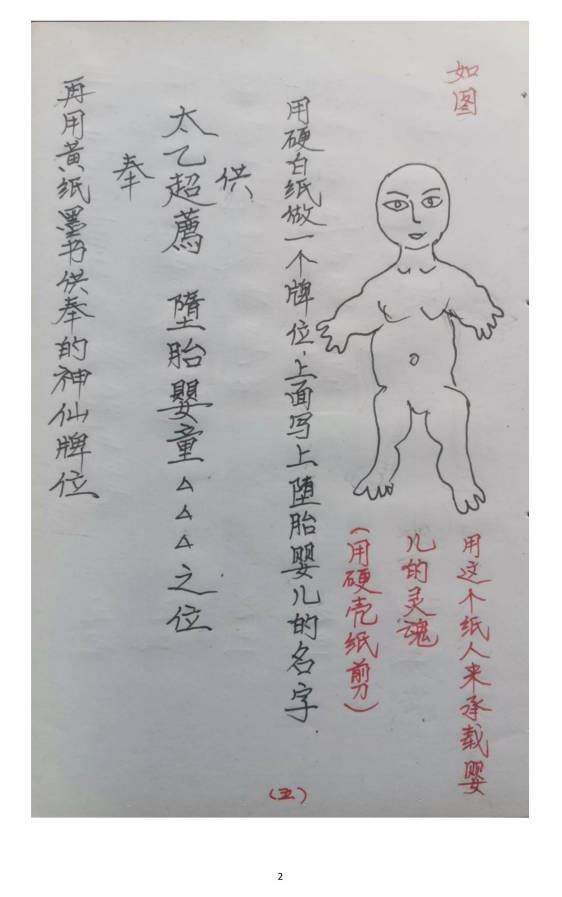 如图
用这个纸人来承载婴
儿的灵魂
(用硬壳纸剪)
用硬白纸做一个牌位,上面写上堕胎婴儿的名字
供
太乙超薦 墮胎嬰童△△△之位
奉
再用黄纸墨书供奉的神仙牌位
(五)
2